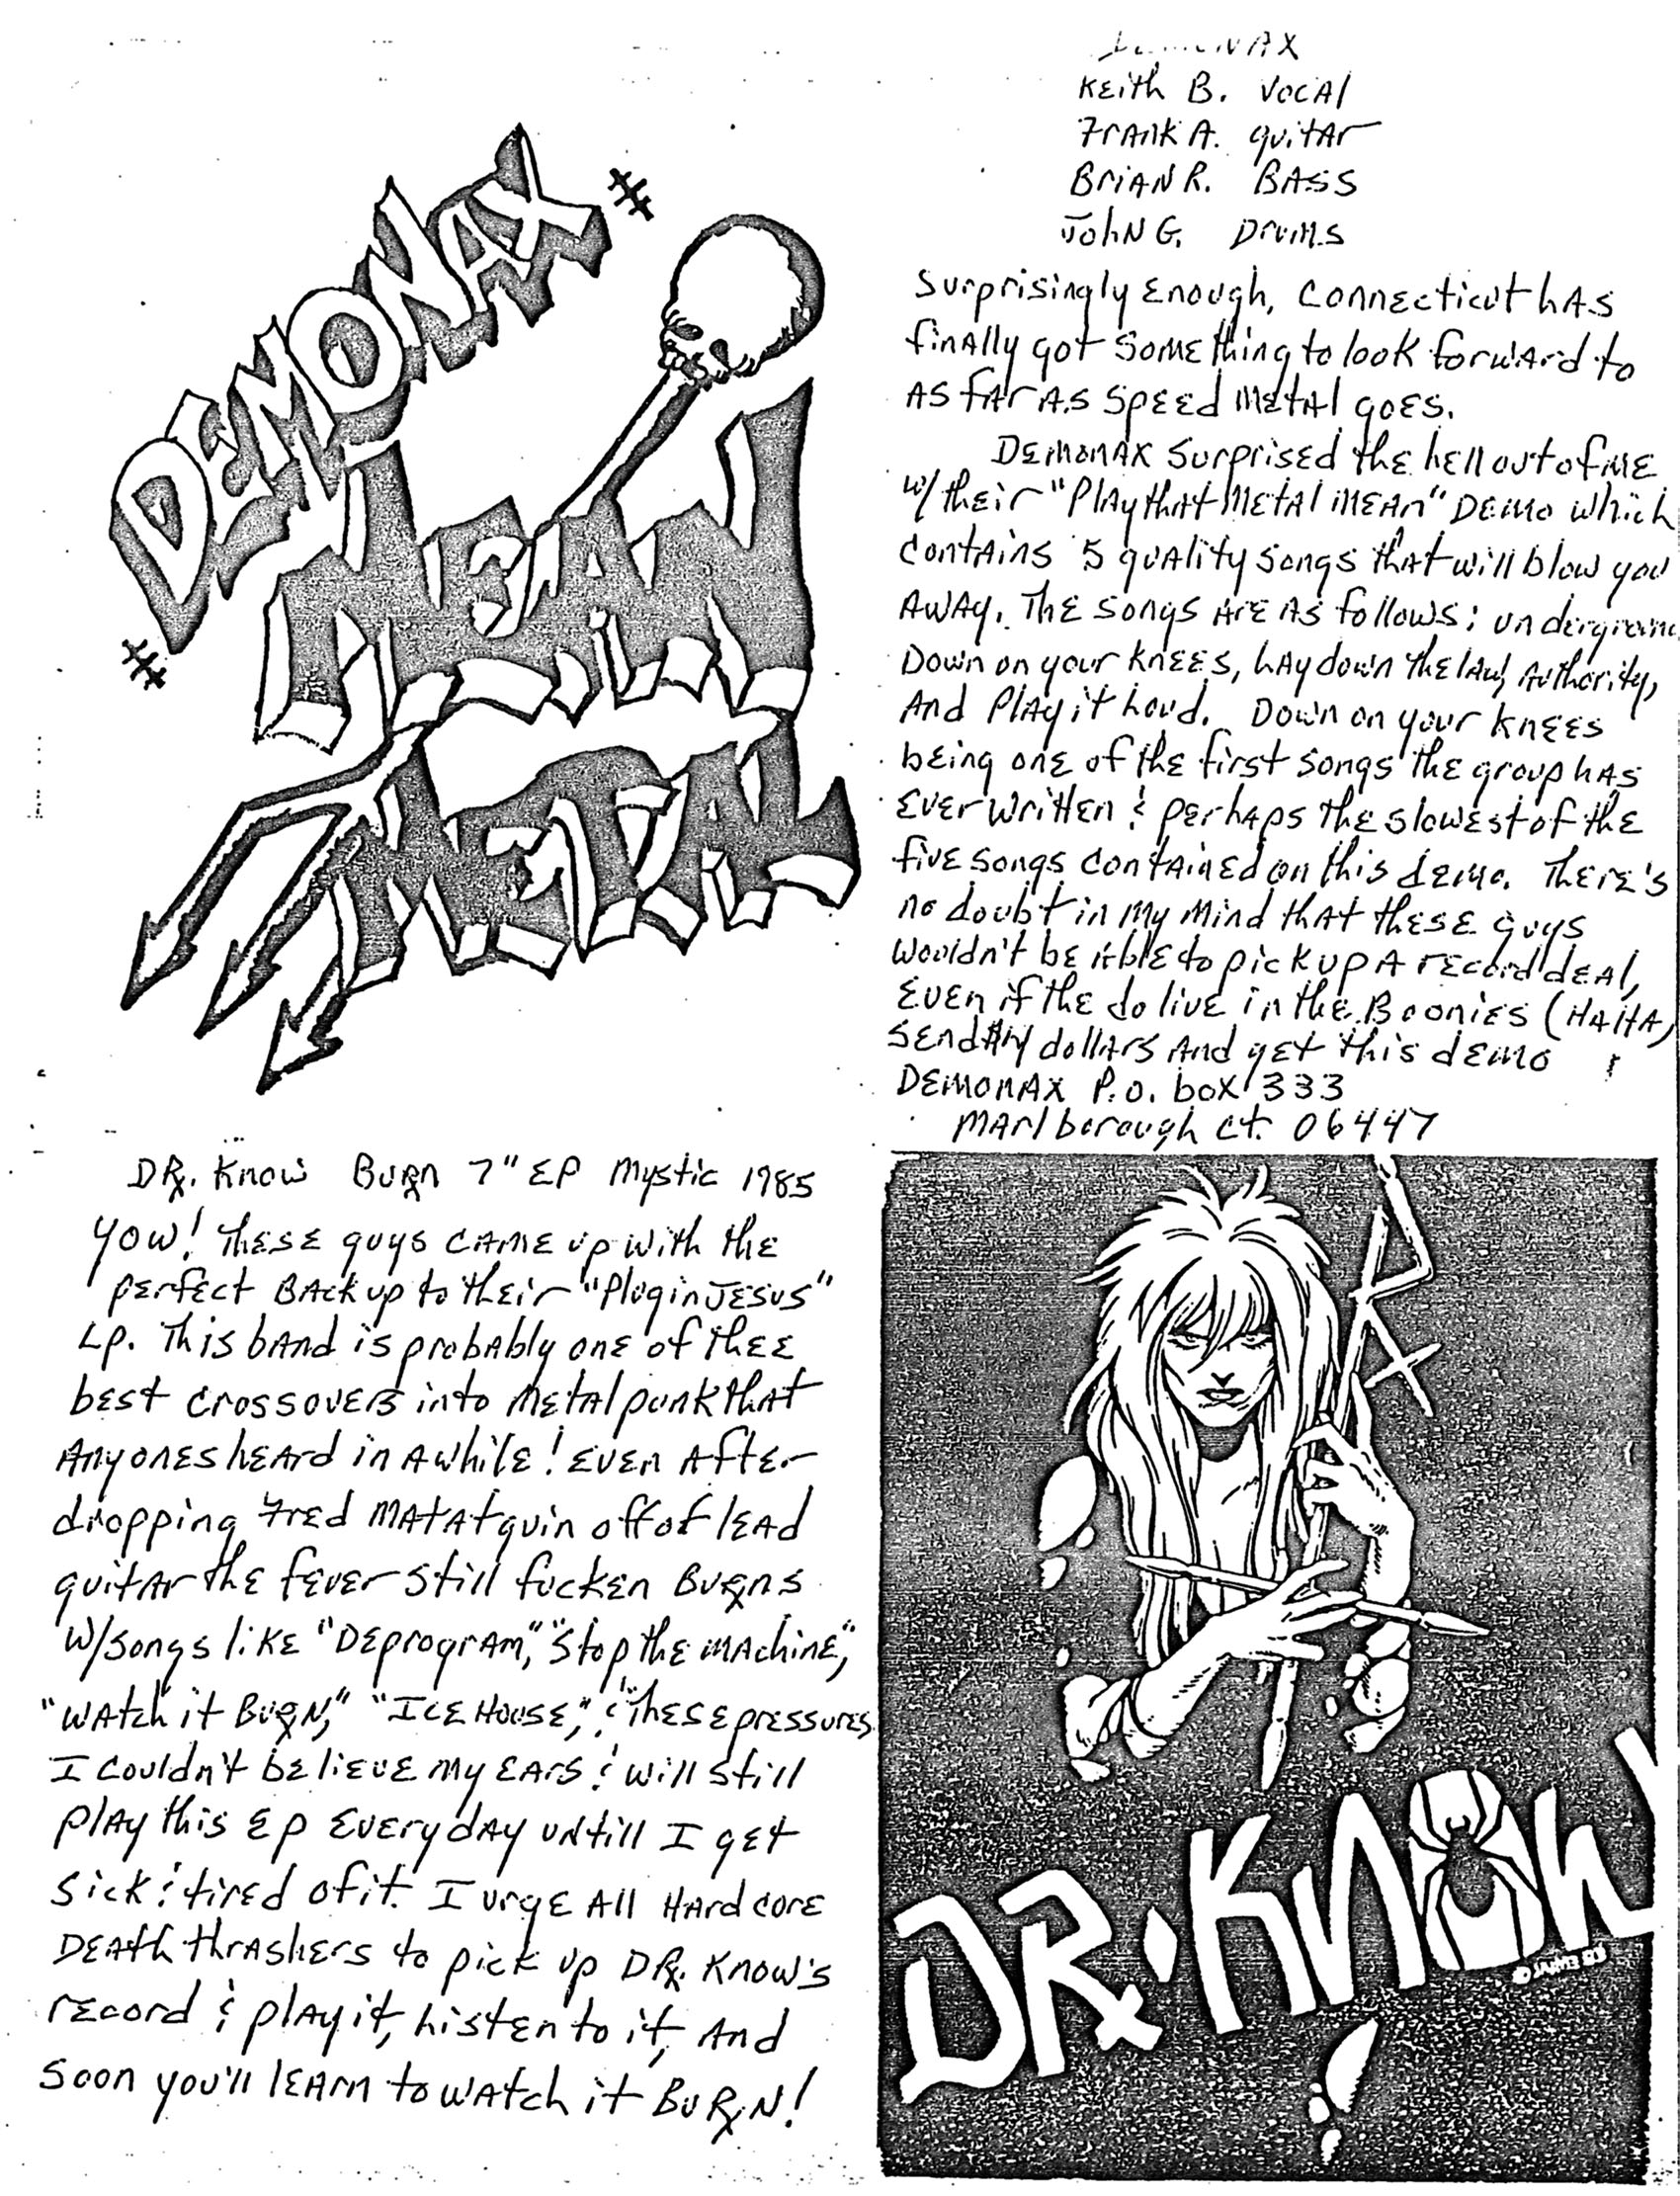 DEMONAX
MEAN
METAL
DEMONAX
Keith B. vocal
Frank A. guitar
Brian R. Bass
John G. Drums
Surprisingly enough, Connecticut has
finally got something to look forward to
as far as speed metal goes.
Demonax surprised the hell out of me
w/ their "Play that Metal Mean" Demo which
contains 5 quality songs that will blow you
away. The songs are as follows: underground
Down on your knees, Lay down the law, Authority,
and Play it Loud. Down on your knees
being one of the first songs the group has
ever written & perhaps the slowest of the
five songs contained on this demo. There's
no doubt in my mind that these guys
wouldn't be able to pick up a record deal,
even if the do live in the Boonies (HAHA)
send dollars and get this demo !
Demonax P.O. box 333
Marlborough ct. 06447
DR. Know Burn 7" EP Mystic 1985
YOW! These guys came up with the
perfect Back up to their "Plug in Jesus"
Lp. This band is probably one of thee
best crossovers into metal punk that
anyones heard in awhile! Even after
dropping Fred Matatquin off of lead
guitar the fever still fucken Burns
w/songs like "Deprogram," "Stop the machine,"
"Watch it Burn," "Ice House," & "These pressures
I couldn't believe my ears & will still
play this EP everyday untill I get
sick & tired of it. I urge all Hardcore
Death thrashers to pick up DR. Know's
record & play it, Listen to it, and
soon you'll learn to watch it BuRN!
DR.KNOW